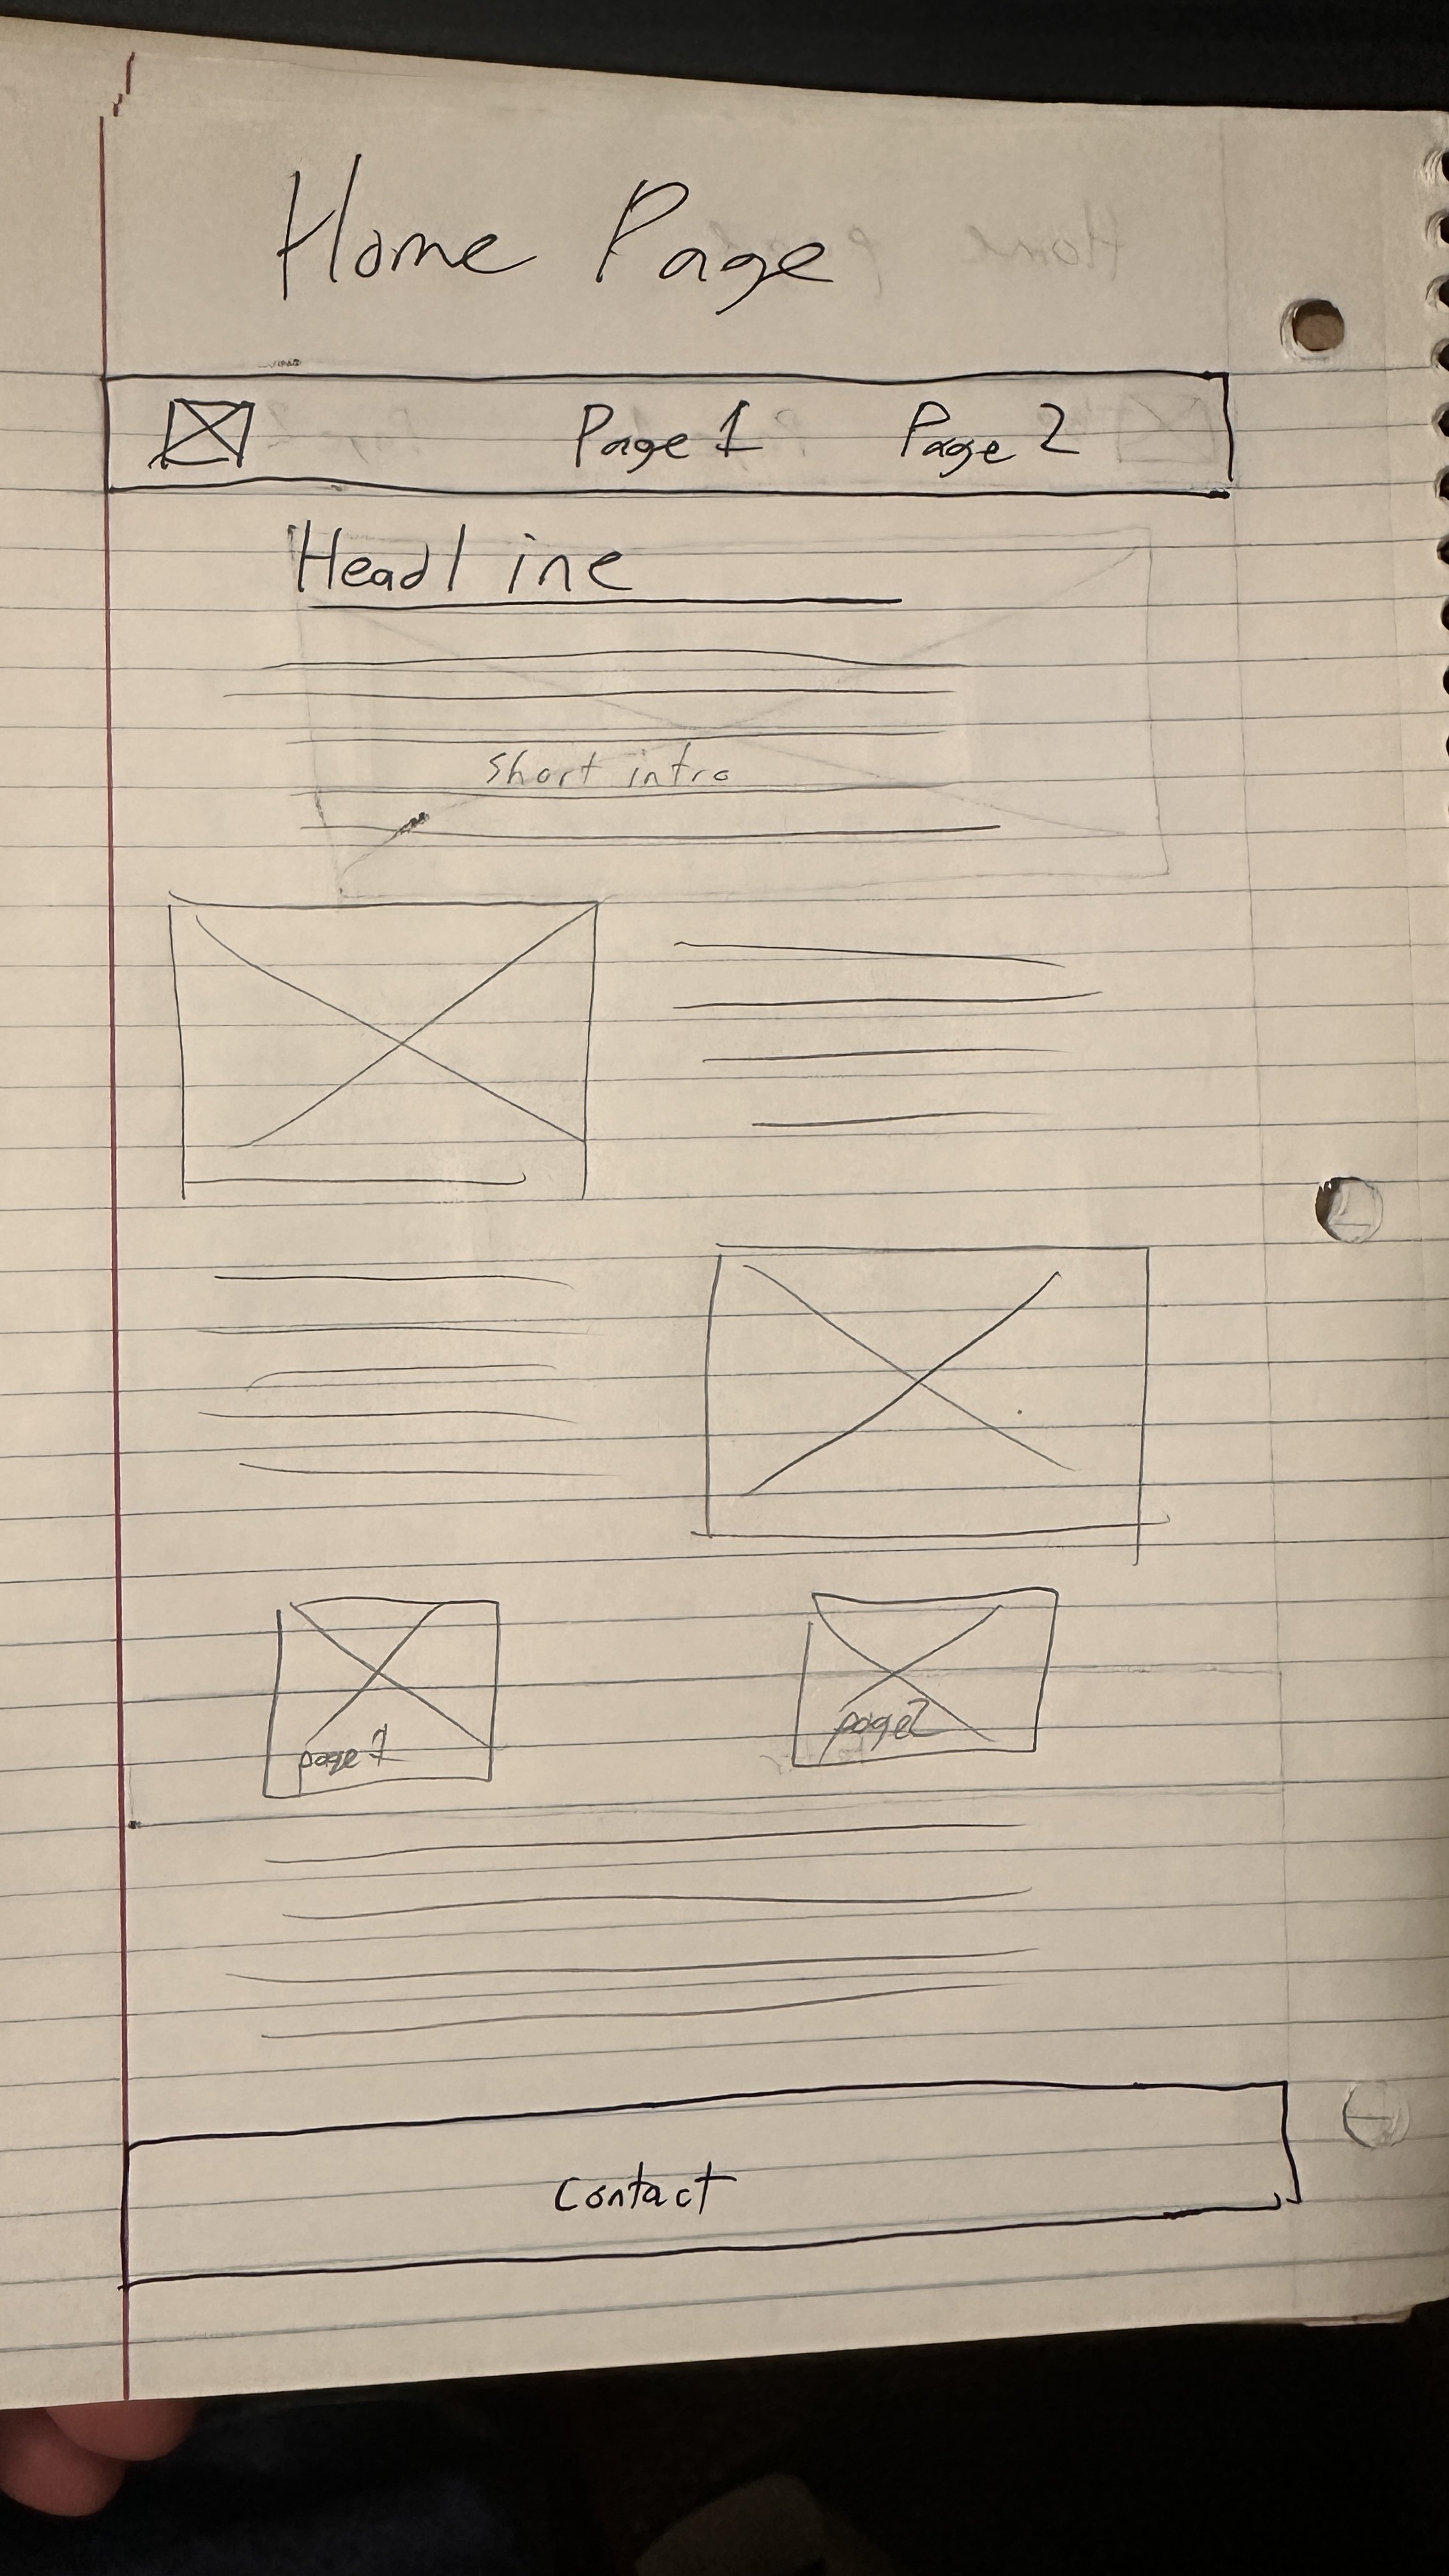 Home Page
Page 1 Page 2
Headline
short intro
page 1 page 2
Contact